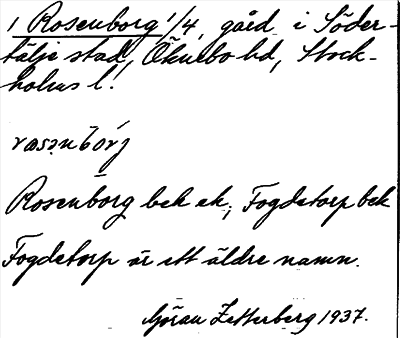 1 Rosenborg 1/4, gård i Söder-
tälje stad, Öknebo hd, Stock-
holms l.
Rosenborg bek ek; Fogdetorp bek
Fogdetorp är ett äldre namn.
Göran Zetterberg 1937.